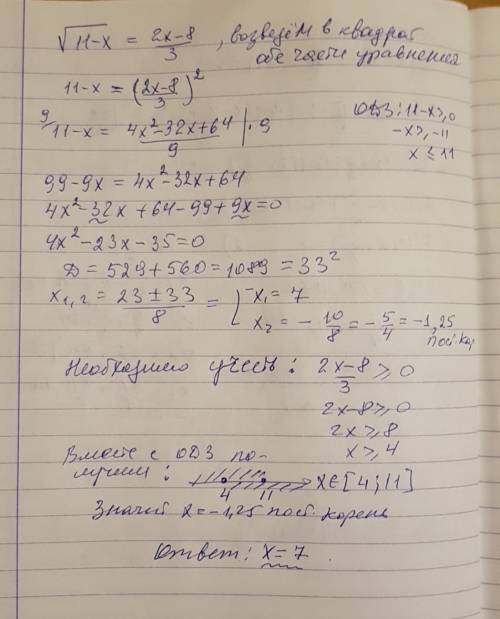 √11-x = 2x-8/3 , возведём в квадрат
обе части уравнения
11-x = (2x-8/3)²
9/ 11-x = 4x²-32x+64/9 |·9
ОДЗ: 11-x≥0
-x≥-11
x≤11
99-9x = 4x²-32x+64
4x²-32x+64-99+9x=0
4x²-23x-35=0
Д = 529+560=1089=33²
x₁,₂ = 23±33/8 = [ x₁=7
x₂ = -10/8 = -5/4 = -1,25
пост. кор
Необходимо учесть: 2x-8/3 ≥0
2x-8≥0
2x≥8
x≥4
Вместе с ОДЗ по-
лучаем:
4 11 x∈[4;11]
Значит x=-1,25 пост. корень
Ответ: x=7.